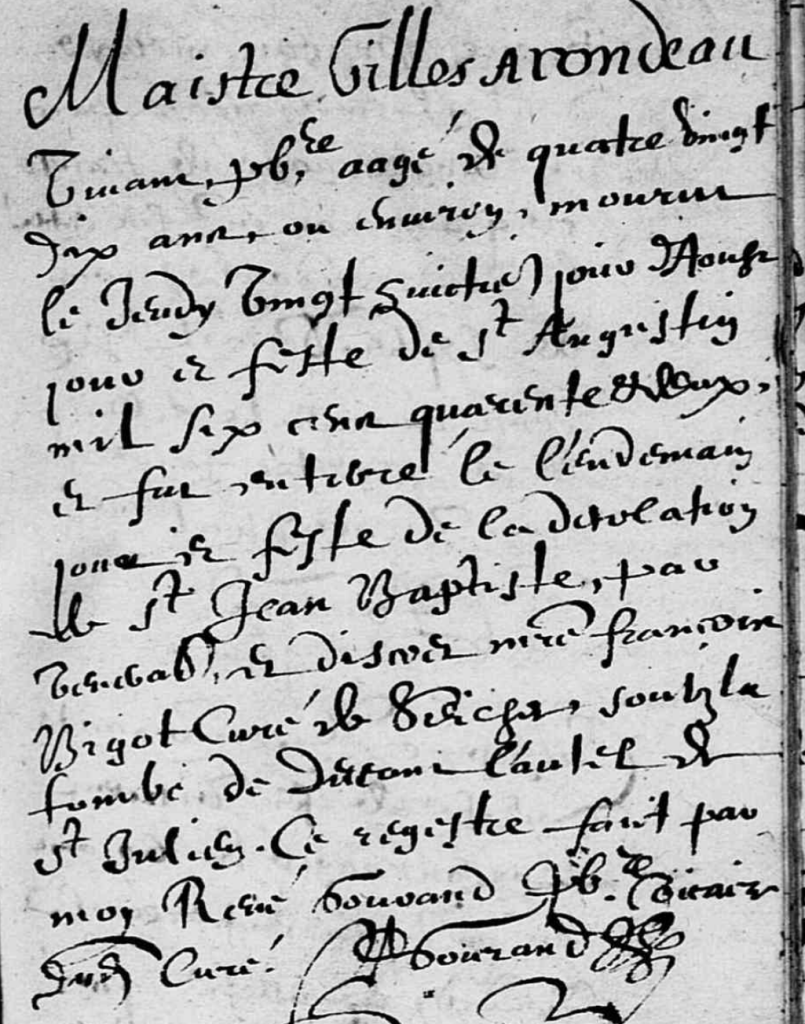 Maistre Gilles Arondeau
vivant, pbre aagé de quatre vingt
dix ans, ou environ, mourut
le Jeudy vingt huictie jour d'Aoust
jour et feste de st Augustin
mil six cens quarente et deux,
et fut enterré le l'endemain
jour et feste de la decolation
de st Jean Baptiste, par
venerab. et discret mre françois
Bigot Curé de Seiches, soubz la
tombe de devant l'autel de
st Julien. Ce registre faict par
moy René Gouraud pbre vicaire
dud Curé. Gouraud